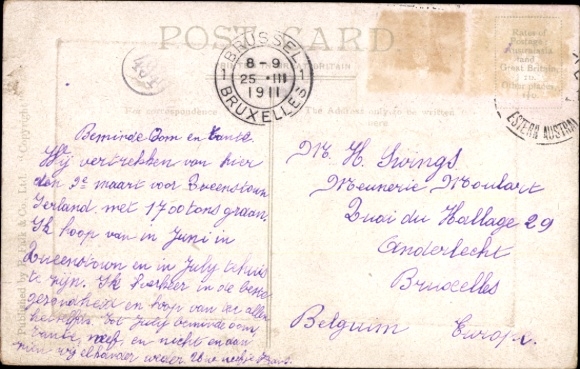 POST CARD
BRUSSEL
1 8-9 1
25 III
1911
BRUXELLES
Rates of
Postage
Australasia
and
Great Britain
1D.
Other places
ESTERN AUSTRAL
For correspondence
The Address only to be written
here
Published by & Co., Ltd. "Copyright
Beminde Oom en tante.
Wij vertrekken van hier
den 9e maart voor Queenstown
Ierland met 1700 tons graan,
Ik hoop van in Juni in
Queenstown en in July te huis
te zijn. Ik verkeer in de beste
gezondheid en hoop van ver allen
hetzelfde. Tot July beminde oom,
tante, neef, en nicht en dan
zien wij elkander weder. Uw neefje
M. H. Swings
Meunerie Moulart
Quai du Hallage 29
Anderlecht
Bruxelles
Belguim Europe.